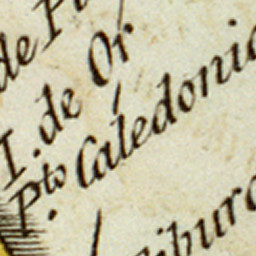 de P
I. de Or
Pto Caledonia
ibur